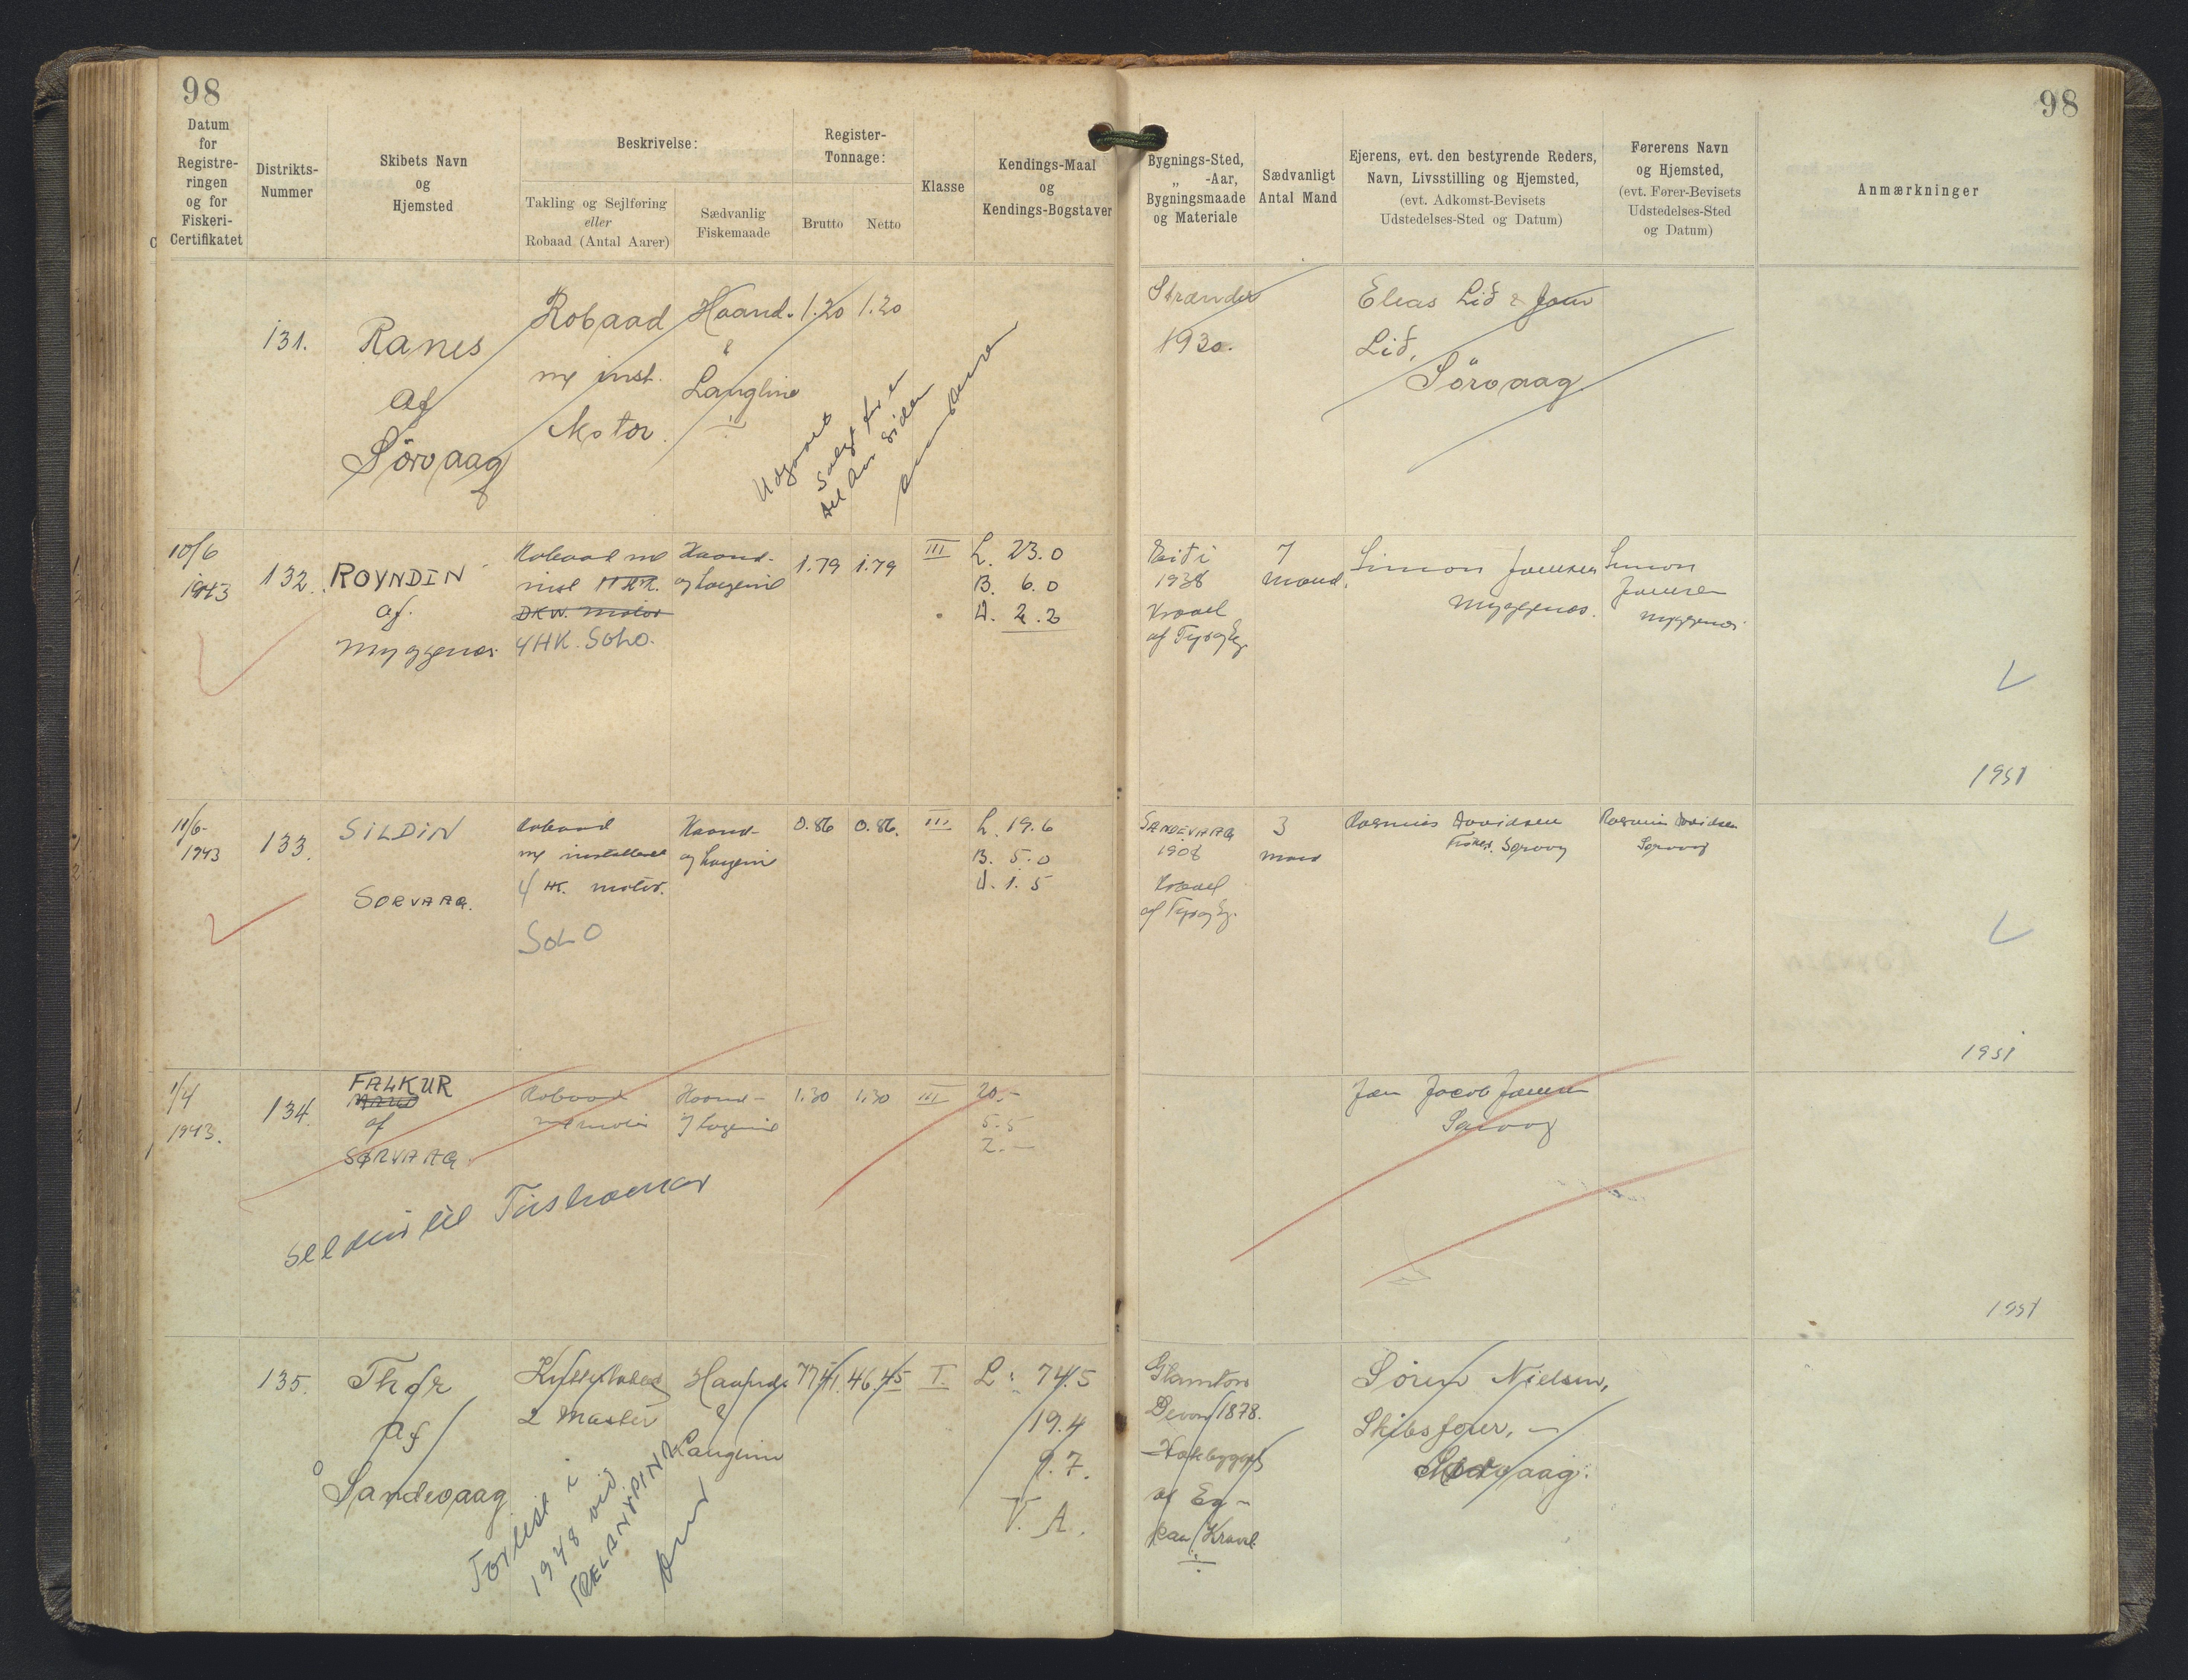 98
98
Datum
for
Registre-
ringen
og for
Fiskeri-
Certifikatet
Distrikts-
Nummer
Skibets Navn
og
Hjemsted
Beskrivelse:
Takling og Sejlføring
eller
Robaad (Antal Aarer)
Sædvanlig
Fiskemaade
Register-
Tonnage:
Brutto
Netto
Klasse
Kendings-Maal
og
Kendings-Bogstaver
Bygnings-Sted,
„ -Aar,
Bygningsmaade
og Materiale
Sædvanligt
Antal Mand
Ejerens, evt. den bestyrende Reders,
Navn, Livsstilling og Hjemsted,
(evt. Adkomst-Bevisets
Udstedelses-Sted og Datum)
Førerens Navn
og Hjemsted,
(evt. Fører-Bevisets
Udstedelses-Sted
og Datum)
Anmærkninger
131.
Ranes
af
Sörvaag
Robaad
m/ inst.
Motor.
Haand-
&
Langline
1.20
1.20
Udgaaet
Solgt for
del Aar siden
1930.
Elias Lið & Joen
Lið,
Sörvaag
10/6
1943
132.
ROYNDIN
af
Myggenæs
Robaad m/
inst
DKW. Motor
4 HK. SOLO.
Haand-
og Langline
1.79
1.79
III
L. 23.0
B. 6.0
D. 2.2
Eiði
1938
Kravel
af Fyr og Eg
7
Mand.
Simon Joensen
Myggenæs.
Simon
Joensen
Myggenæs
1951
11/6-
1943
133.
SILDIN
SORVAAG.
Robaad
m/ installeret
4 HK. motor.
SOLO
Haand-
og Langline
0.86
0.86.
III
L. 19.6
B. 5.0
D. 1.5
SANDEVAAG
1908
Kravel
af Fyr og Eg.
3
Mand
Rasmus Davidsen
Fisker. Sørvaag
Rasmus Davidsen
Sørvaag
1951
1/4
1943.
134.
FALKUR
af
SØRVAAG
Robaad
m/ motor
Haand-
og Langline
1.30
1.30
III
20.-
5.5
2.-
seldur til Tórshavnar
Joen Jacob Joensen
Sørvaag
1951
135.
Thor
af
Sandevaag
2 Master
Haand-
&
Langline
77.41.
46.45
I.
L: 74.5
19.4
9.7.
V. A.
Forlist i
1948 ved
Devon 1878.
af Eg-
paa Kravel
Sören Nielsen,
Skibsfører, -